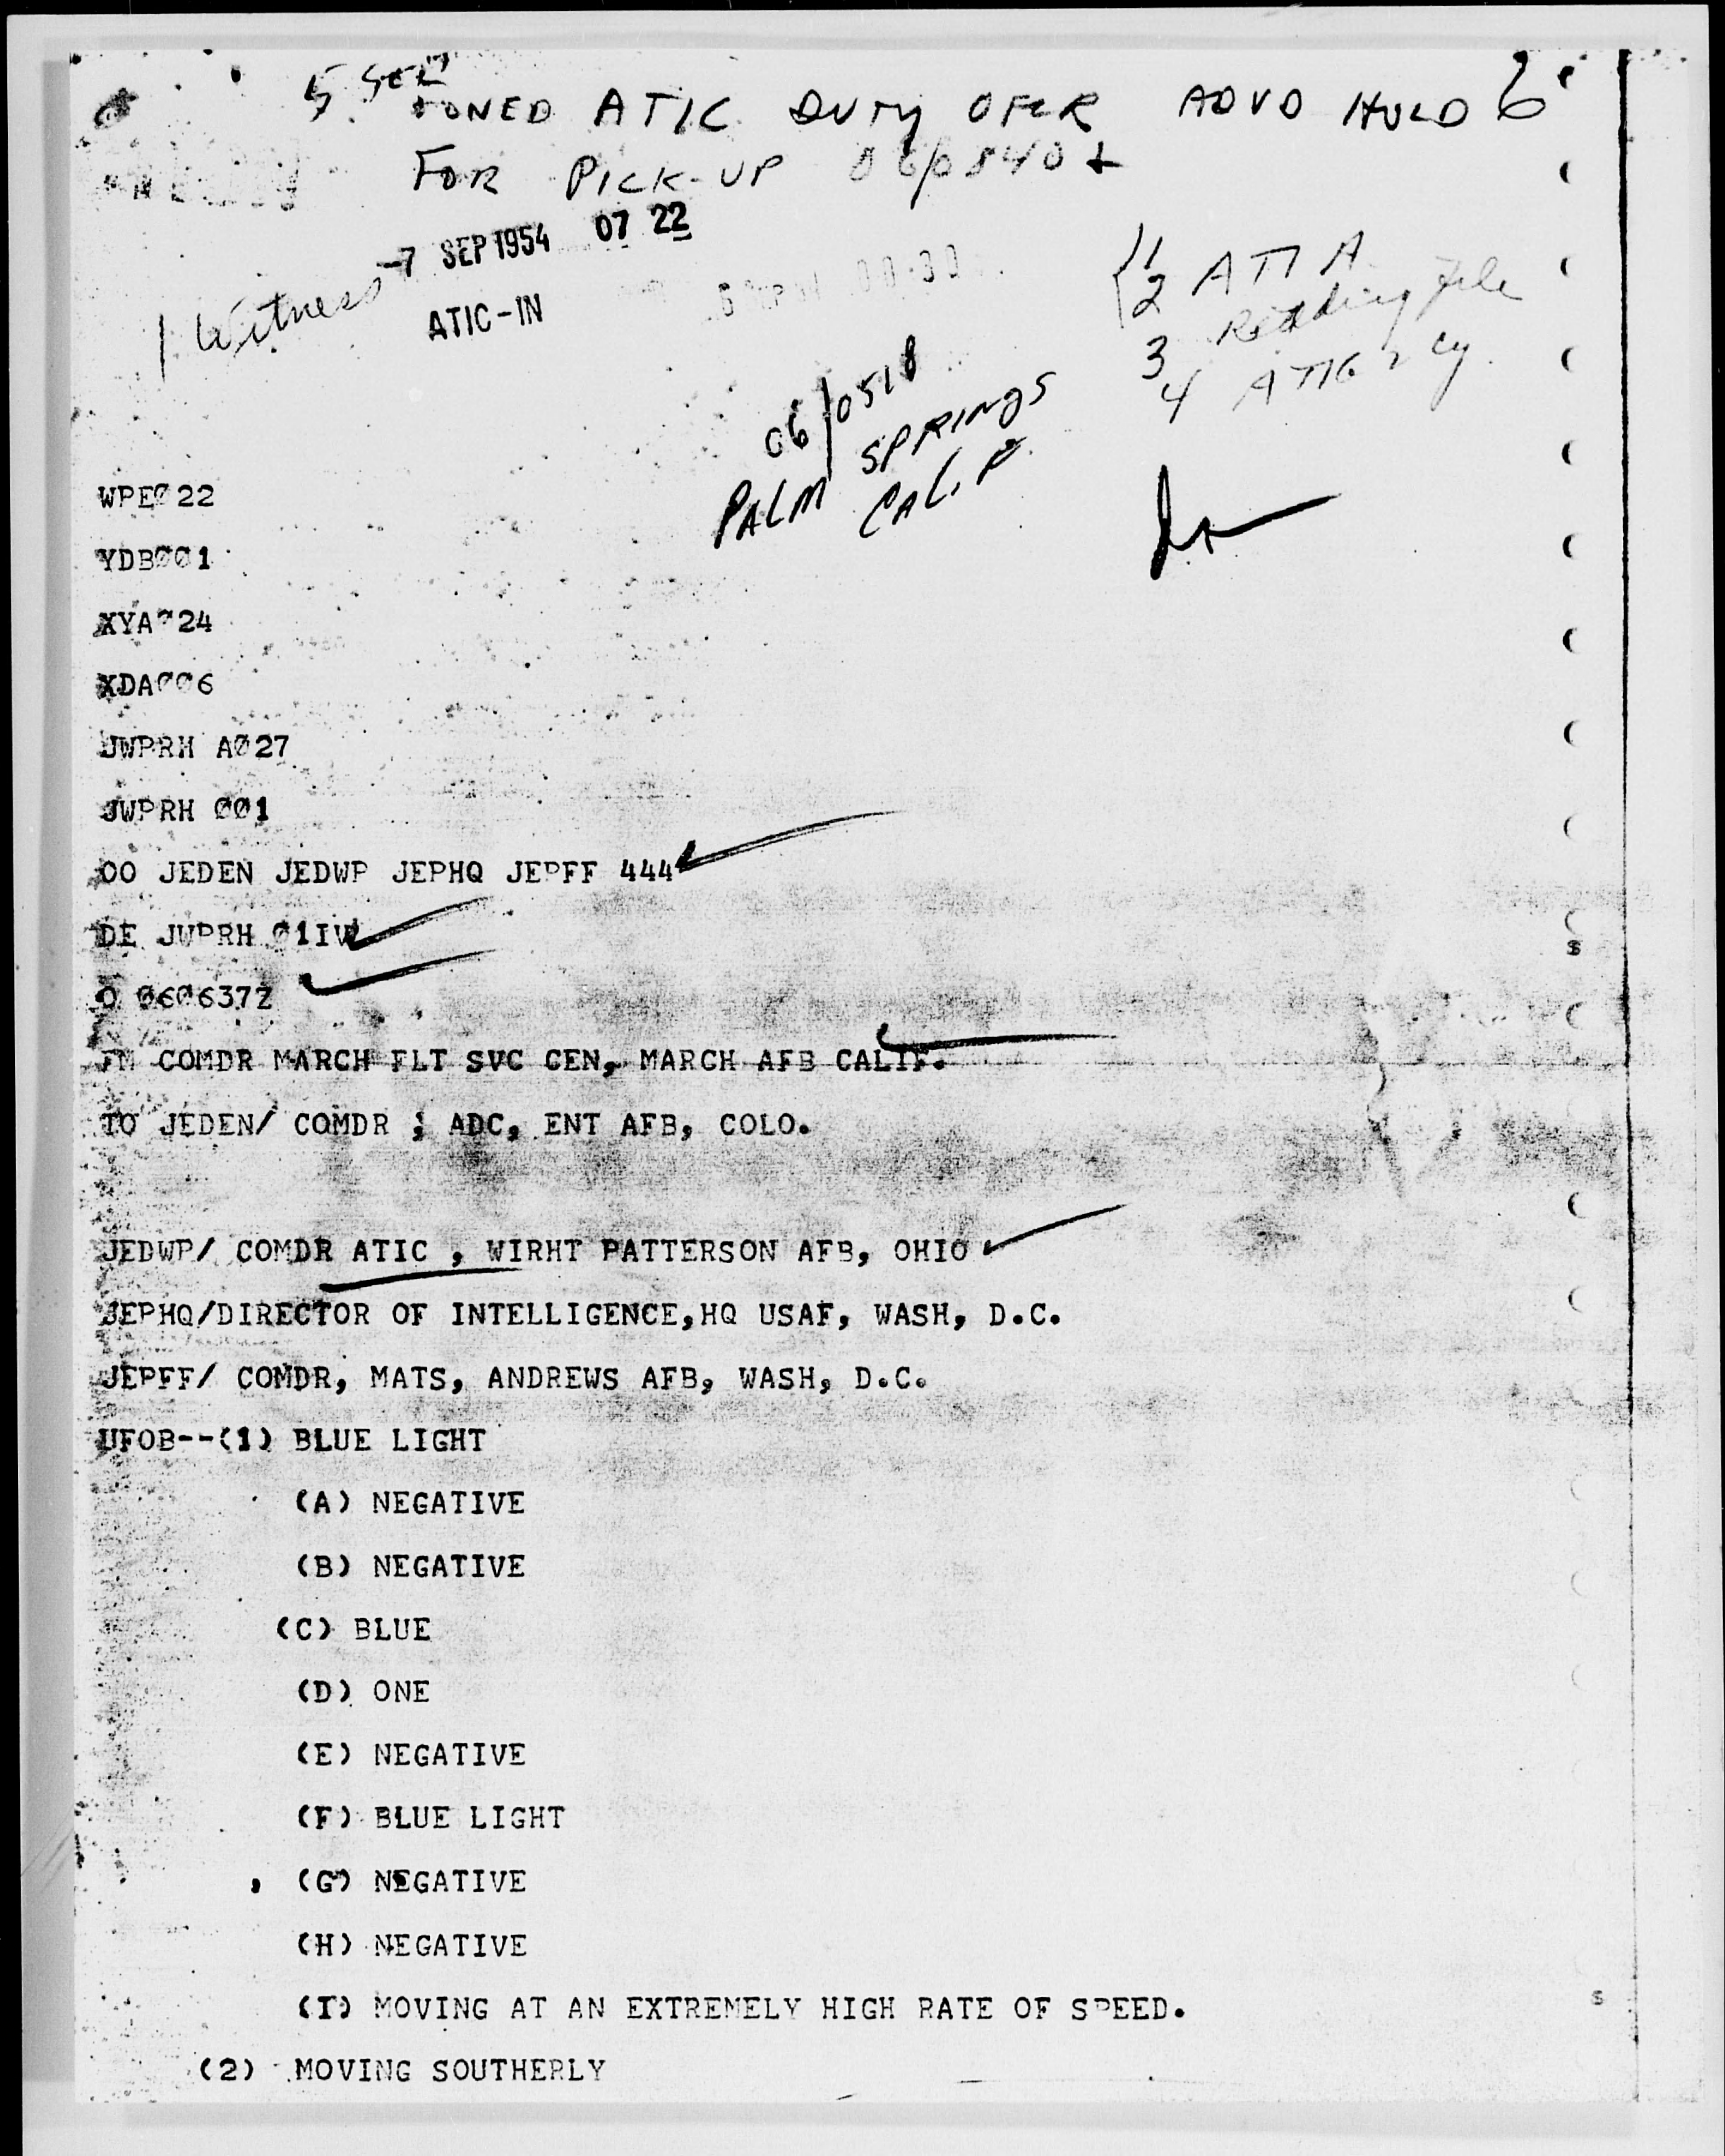 5 SEC
FONED ATIC DUTY OFCR ADVD HOLD
FOR PICK-UP 06/0840Z
-7 SEP 1954 07 22
ATIC-IN
1 Witness
1
2 ATIA
Reading file
3
4 ATIG 2 cy
06/0518
PALM SPRINGS
CALIF
WPE022
YDB001
XYA024
XDA006
JWPRH A027
JWPRH 001
OO JEDEN JEDWP JEPHQ JEPFF 444
DE JWPRH 01IW
O 060637Z
FM COMDR MARCH FLT SVC CEN, MARCH AFB CALIF.
TO JEDEN/ COMDR ; ADC, ENT AFB, COLO.
JEDWP/ COMDR ATIC , WIRHT PATTERSON AFB, OHIO
JEPHQ/DIRECTOR OF INTELLIGENCE,HQ USAF, WASH, D.C.
JEPFF/ COMDR, MATS, ANDREWS AFB, WASH, D.C.
UFOB--(1) BLUE LIGHT
(A) NEGATIVE
(B) NEGATIVE
(C) BLUE
(D) ONE
(E) NEGATIVE
(F) BLUE LIGHT
(G) NEGATIVE
(H) NEGATIVE
(I) MOVING AT AN EXTREMELY HIGH RATE OF SPEED.
(2) MOVING SOUTHERLY